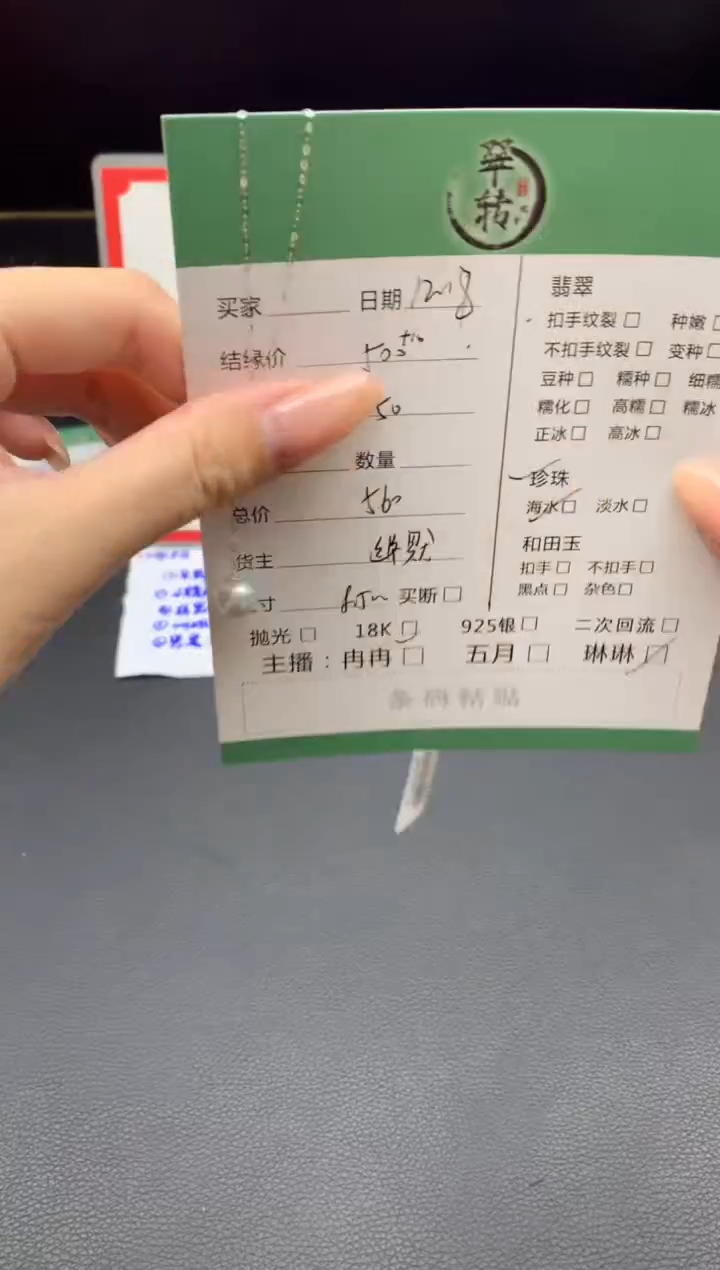 翠转
买家 日期 1208
结缘价 500+10
50
数量
总价 560
货主
寸 买断
翡翠
扣手纹裂 种嫩
不扣手纹裂 变种
豆种 糯种 细糯
糯化 高糯 糯冰
正冰 高冰
珍珠
海水 淡水
和田玉
扣手 不扣手
黑点 杂色
抛光 18K 925银 二次回流
主播：冉冉 五月 琳琳
条码粘贴